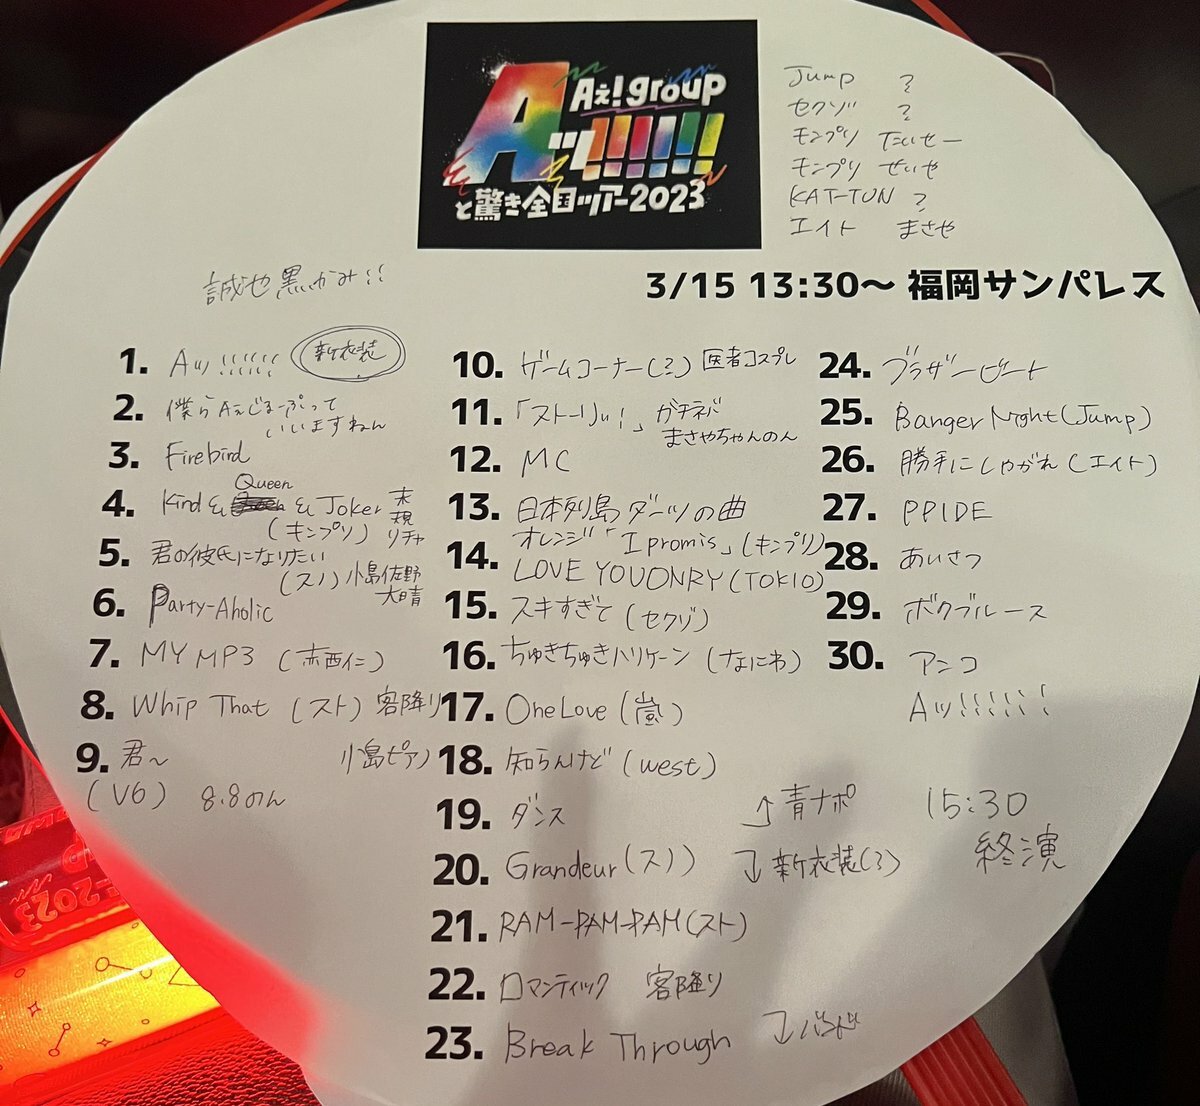 Aぇ! group
Aッ!!!!!!
と驚き全国ツアー2023
Jump ?
セクゾ ?
キンプリ たいせー
キンプリ せいや
KAT-TUN ?
エイト まさや
誠也黒かみ!!
3/15 13:30～ 福岡サンパレス
1. Aッ!!!!!! 新衣装
2. 僕らAぇぐるーぷって
いいますねん
3. Firebird
4. Kind & Queen & Joker 末規リチャ
(キンプリ)
5. 君の彼氏になりたい
(スノ) 小島佐野大晴
6. Party-Aholic
7. MY MP3 (赤西仁)
8. Whip That (スト) 客降り
9. 君～ 小島ピアノ
(V6) 8.8のん
10. ゲームコーナー(?) 医者コスプレ
11. 「ストーリぃ!」 ガチネバ
まさやちゃんのん
12. MC
13. 日本列島ダーツの曲
オレンジ「I promis」(キンプリ)
14. LOVE YOUONRY (TOKIO)
15. スキすぎて (セクゾ)
16. ちゅきちゅきハリケーン (なにわ)
17. One Love (嵐)
18. 知らんけど (west)
19. ダンス ↑青ナポ
20. Grandeur (スノ) ↓新衣装(?)
21. RAM-PAM-PAM (スト)
22. ロマンティック 客降り
23. Break Through ↓バンド
24. ブラザービート
25. Banger Night (Jump)
26. 勝手にしやがれ (エイト)
27. PPIDE
28. あいさつ
29. ボクブルース
30. アンコ
Aッ!!!!!!
15:30
終演
2023